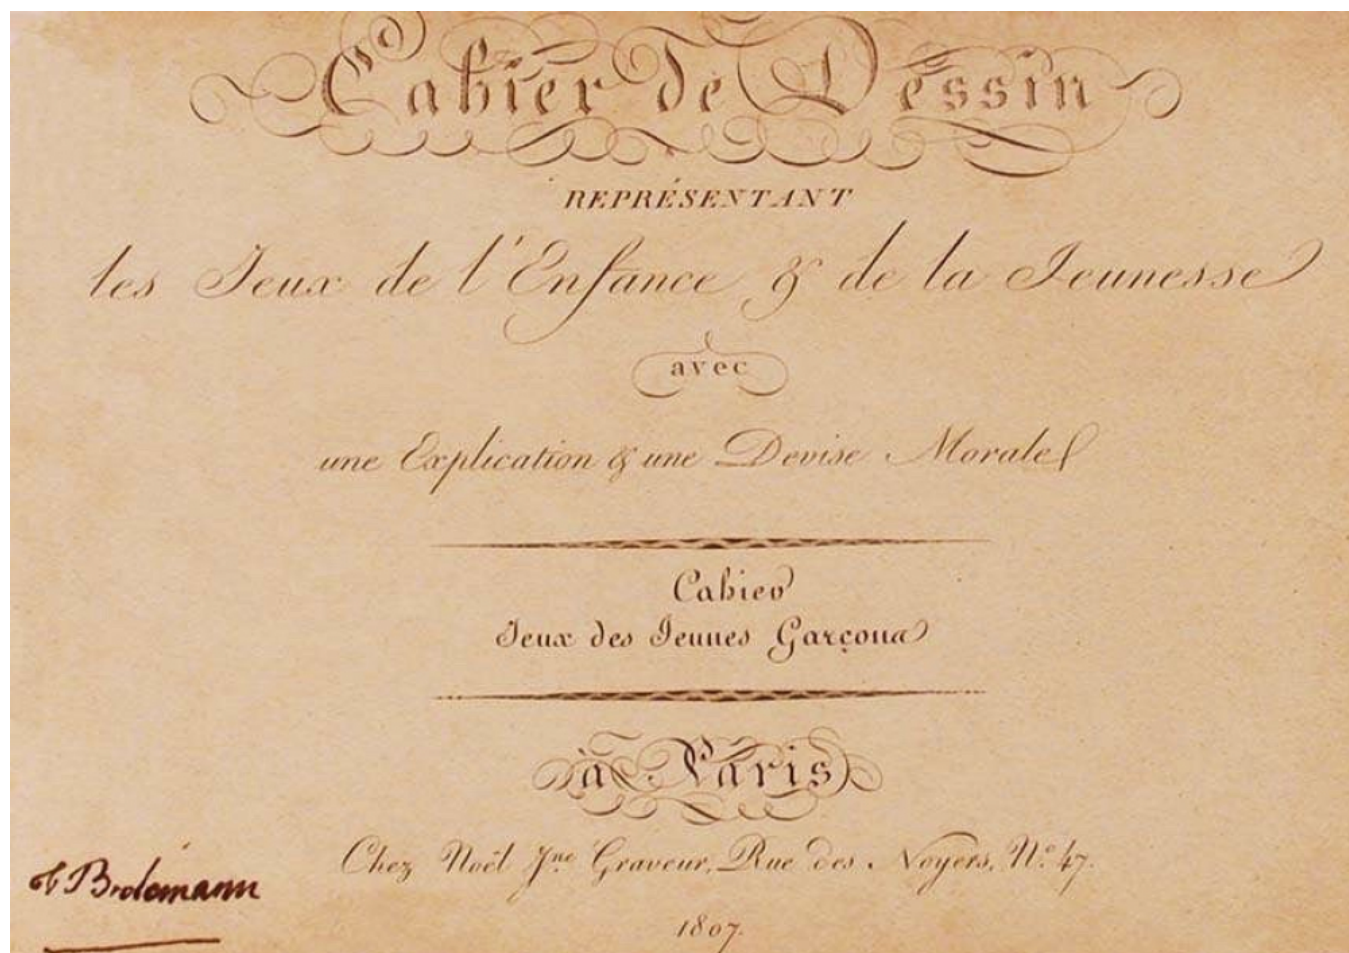 Cahier de Dessin
REPRÉSENTANT
les Jeux de l'Enfance & de la Jeunesse
avec
une Explication & une Devise Morale
Cahier
Jeux des Jeunes Garçons
à Paris
Chez Noël Jne. Graveur, Rue des Noyers, No. 47.
1807.
Brolemann